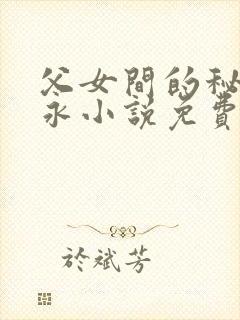 父女間的秘
永小説免費
於斌芳